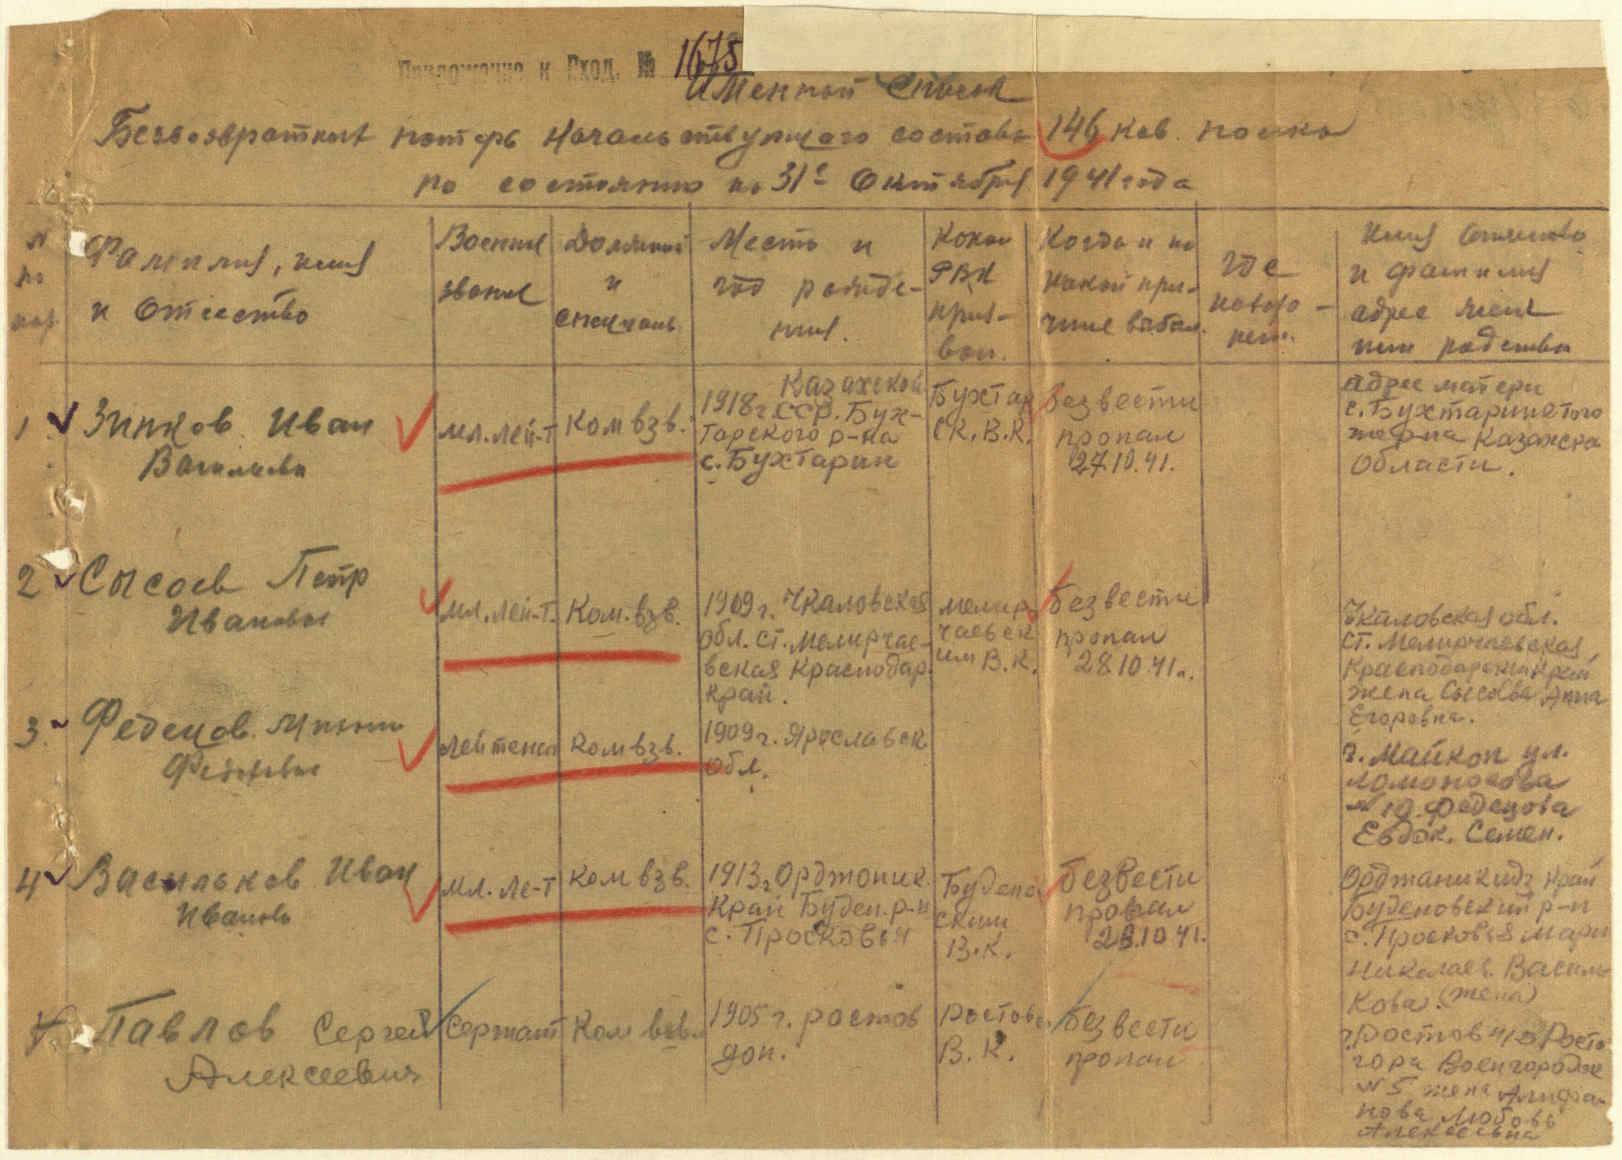 Приложение к Вход. № 1675
Именной список
Безвозвратных потерь начальствующего состава 146 кав. полка
по состоянию на 31е Октября 1941 года
№ по пор.
Фамилия, имя
и Отчество
Военное
звание
Должность
и
специальн.
Место и
год рожде-
ния.
Каким
РВК
приз-
ван.
Когда и по
какой при-
чине выбыл.
Где
похоро-
нен.
Имя Отчество
и фамилия
адрес жены
или родствен
1 Зинков Иван
Васильеви
мл. лей-т
Ком взв.
Казахской
1918 г. ССР. Бух-
тарского р-на
с. Бухтарин
Бухтар
ск. В.К.
безвести
пропал
27.10.41.
Адрес матери
с. Бухтаринстого
Казахска
Области.
2 Сысоев Петр
Иванович
мл. лей-т.
Ком. взв.
1909 г. Чкаловская
обл. ст. Мелирчае-
вская Краснодар.
край.
мелир
чаевск
им В.К.
безвести
пропал
28.10.41 г.
Чкаловская обл.
ст. Мелирчаевская
Краснодарский край
жена Сысоева Анна
Егоровна.
3. Феденцов
Федорович
лейтенан
Ком взв.
1909 г. Ярославск
обл.
г. Майкоп ул.
Ломоносова
№ 10. Феденцова
Евдок. Семен.
4 Васильков Иван
Иванови
мл. ле-т
Ком взв.
1913 г. Орджоник.
край Буден. р-н
с. Прасковья
Будено
вским
В.К.
безвести
пропал
28.10 41.
Орджаникидз край
Буденовский р-н
с. Прасковья Мари
Николаев. Василь
кова. (жена)
Павлов Сергей
Алексеевич
Сержант
Ком взв.
1905 г. ростов
дон.
ростов
В.К.
безвести
пропал
г. Ростов н/Д Росто-
гора Воен городок
№ 5 жена
нова Любовь
Алексеевна